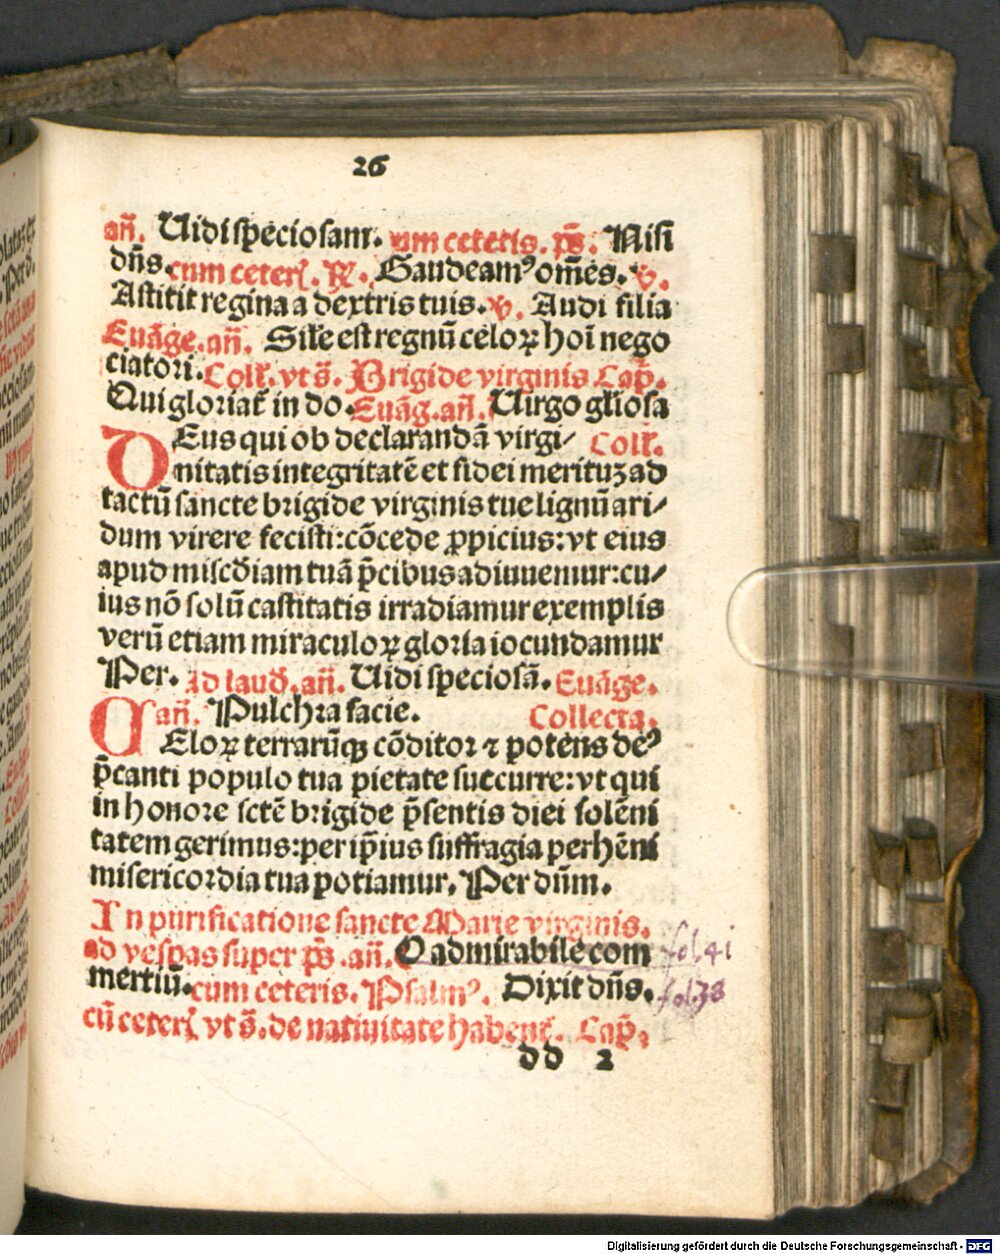 26
an̄. Uidi speciosam. um ceteris. ps̄. Nisi
dn̄s. cum ceterꝭ. ℟. Gaudeamꝰ om̄es. ℣.
Astitit regina a dextris tuis. ℣. Audi filia
Euāge. an̄. Sil̄e est regnū celoꝝ hoī nego
ciatori. Coll̄. vt s̄. Brigide virginis Cap̄.
Qui gloriat̄ in do. Euāg. an̄. Uirgo gl̄iosa
DEus qui ob declarandā virgi⸗ Coll̄.
nitatis integritatē et fidei meritum ad
tactū sancte brigide virginis tue lignū ari⸗
dum virere fecisti: cōcede ꝓpicius: vt eius
apud misc̄diam tuā p̄cibus adiuuemur: cu⸗
ius nō solū castitatis irradiamur exemplis
verū etiam miraculoꝝ gloria iocundamur
Per. Ad laud̄. an̄. Uidi speciosā. Euāge.
an̄. Pulchra facie. Collecta.
CEloꝝ terrarūqꝫ cōditor ⁊ potens deꝰ
p̄canti populo tua pietate succurre: vt qui
in honore sctē brigide p̄sentis diei solēni
tatem gerimus: per ip̄ius suffragia perhēni
misericordia tua potiamur. Per dūm.
In purificatione sancte Marie virginis.
ad vesꝑas super ps̄. an̄. O admirabile com fol. 41
mertiū. cum ceteris. Psalmꝰ. Dixit dn̄s. fol. 38
cū ceterꝭ vt s̄. de natiuitate habent̄. Cap̄.
dd 2
Digitalisierung gefördert durch die Deutsche Forschungsgemeinschaft - DFG